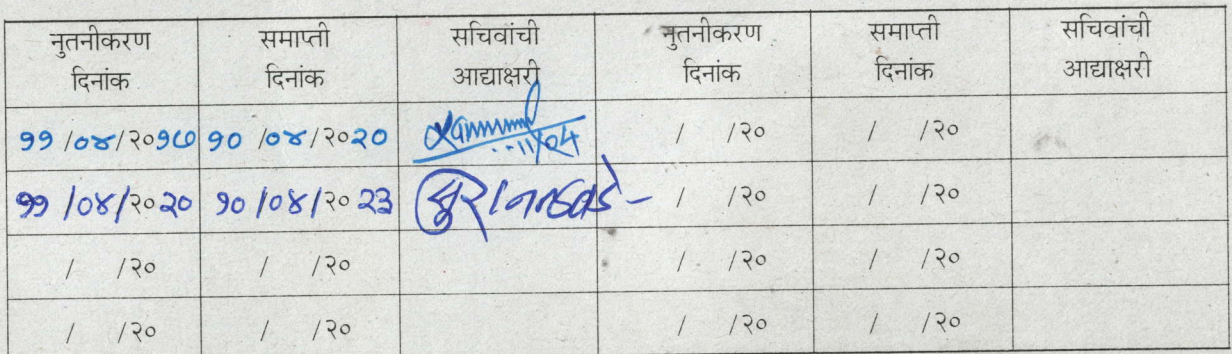 नुतनीकरण दिनांक समाप्ती दिनांक सचिवांची आद्याक्षरी नुतनीकरण दिनांक समाप्ती दिनांक सचिवांची आद्याक्षरी
११/०४/२०१७ १०/०४/२०२० / /२० / /२०
११/०४/२०२० १०/०४/२०२३ / /२० / /२०
/ /२० / /२० / /२० / /२०
/ /२० / /२० / /२० / /२०